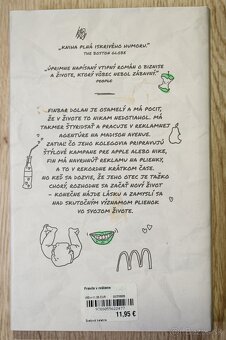 „KNIHA PLNÁ ISKRIVÉHO HUMORU.“
THE BOSTON GLOBE
„ÚPRIMNE NAPÍSANÝ VTIPNÝ ROMÁN O BIZNISE
A ŽIVOTE, KTORÝ VÔBEC NEBOL ZÁBAVNÝ.“
PEOPLE
FINBAR DOLAN JE OSAMELÝ A MÁ POCIT,
ŽE V ŽIVOTE TO NIKAM NEDOTIAHOL. MÁ
TAKMER ŠTYRIDSAŤ A PRACUJE V REKLAMNEJ
AGENTÚRE NA MADISON AVENUE.
ZATIAĽ ČO JEHO KOLEGOVIA PRIPRAVUJÚ
ŠTÝLOVÉ KAMPANE PRE APPLE ALEBO NIKE,
FIN MÁ NAVRHNÚŤ REKLAMU NA PLIENKY,
A TO V REKORDNE KRÁTKOM ČASE.
NO KEĎ SA DOZVIE, ŽE JEHO OTEC JE ŤAŽKO
CHORÝ, ROZHODNE SA ZAČAŤ NOVÝ ŽIVOT
– KONEČNE NÁJDE LÁSKU A ZAMYSLÍ SA
NAD SKUTOČNÝM VÝZNAMOM PLIENOK
VO SVOJOM ŽIVOTE.
Pravda v reklame
11,95 €